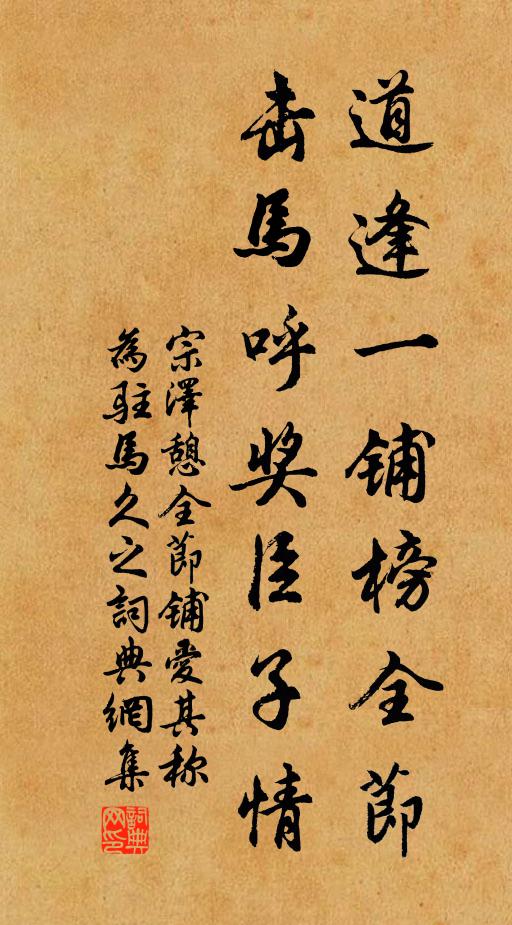 道逢一鋪榜全節
击馬呼奖臣子情
宗澤憩全節鋪愛其称
為駐馬久之詞典網集
詞典网印